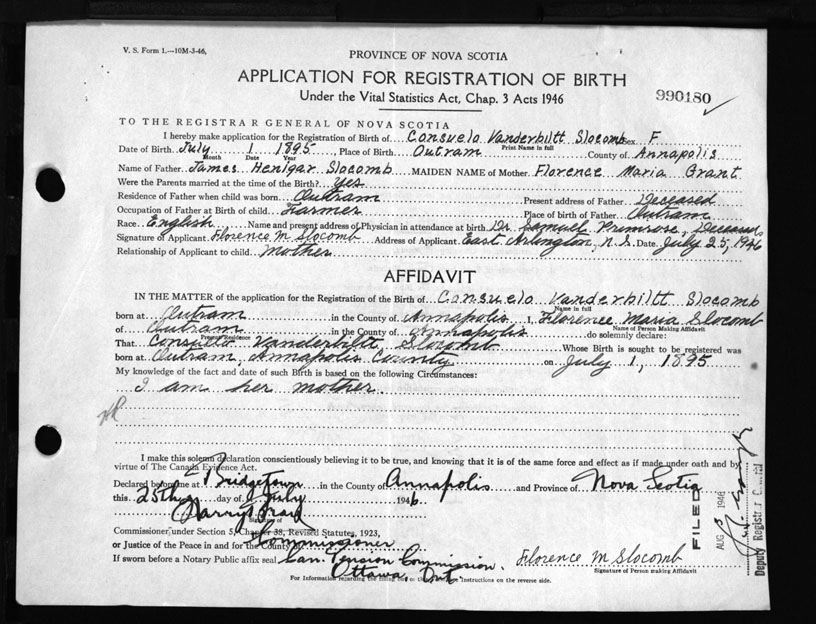 V. S. Form 1.—10M-3-46,
PROVINCE OF NOVA SCOTIA
APPLICATION FOR REGISTRATION OF BIRTH
Under the Vital Statistics Act, Chap. 3 Acts 1946
990180
TO THE REGISTRAR GENERAL OF NOVA SCOTIA
I hereby make application for the Registration of Birth of Consuelo Vanderbiltt Slocomb Sex F
Print Name in full
Date of Birth July 1 1895 Place of Birth Outram County of Annapolis
Month Date Year
Name of Father James Henigar Slocomb MAIDEN NAME of Mother Florence Maria Grant
Were the Parents married at the time of the Birth? Yes
Residence of Father when child was born Outram Present address of Father Deceased
Occupation of Father at Birth of child Farmer Place of birth of Father Outram
Race English Name and present address of Physician in attendance at birth Dr Samuel Primrose, Deceased
Signature of Applicant Florence M Slocomb Address of Applicant East Arlington, N.S. Date July 25, 1946
Relationship of Applicant to child mother
AFFIDAVIT
IN THE MATTER of the application for the Registration of the Birth of Consuelo Vanderbiltt Slocomb
Name in full
born at Outram in the County of Annapolis I, Florence Maria Slocomb
Name of Person Making Affidavit
of Outram in the County of Annapolis do solemnly declare:
Present Residence
That Consuelo Vanderbiltt Slocomb Whose Birth is sought to be registered was
born at Outram, Annapolis County on July 1, 1895
My knowledge of the fact and date of such Birth is based on the following Circumstances:
I am her mother.
I make this solemn declaration conscientiously believing it to be true, and knowing that it is of the same force and effect as if made under oath and by
virtue of The Canada Evidence Act.
Declared before me at Bridgetown in the County of Annapolis and Province of Nova Scotia
this 25th day of July 1946
Harry
Commissioner under Section 5, Chapter 38, Revised Statutes, 1923,
or Justice of the Peace in and for the County of Commissioner
If sworn before a Notary Public affix seal Can. Pension Commission.
Ottawa, Ont.
Florence M Slocomb
Signature of Person making Affidavit
For Information regarding the filling out Instructions on the reverse side.
FILED
AUG 1946
Deputy Registrar General